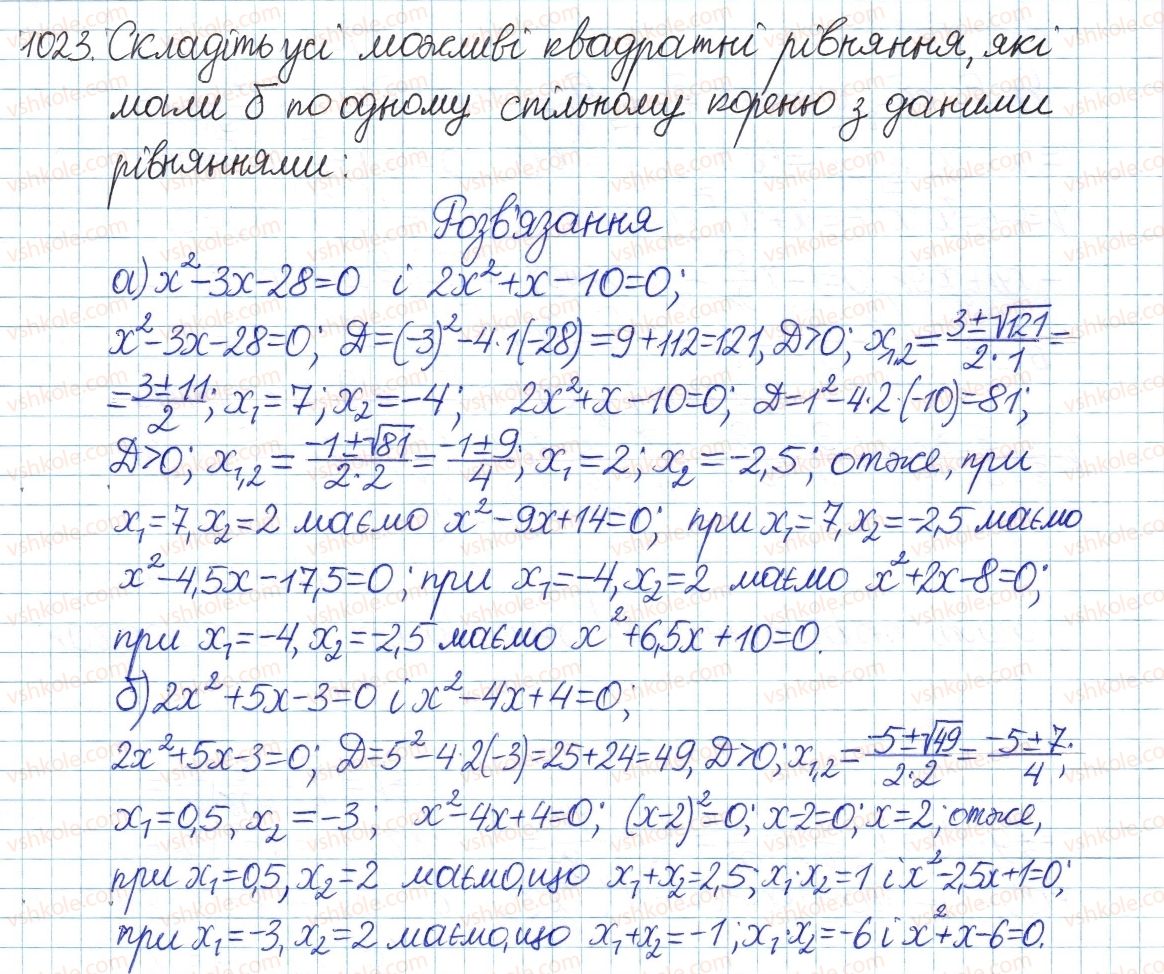 1023. Складіть усі можливі квадратні рівняння, які
мали б по одному спільному кореню з даними
рівняннями:
Розв'язання
а) x²-3x-28=0 і 2x²+x-10=0;
x²-3x-28=0; D=(-3)²-4·1(-28)=9+112=121, D>0; x₁,₂=(3±√121)/(2·1)=
=(3±11)/2; x₁=7; x₂=-4; 2x²+x-10=0; D=1²-4·2·(-10)=81;
D>0; x₁,₂=(-1±√81)/(2·2)=(-1±9)/4; x₁=2; x₂=-2,5; отже, при
x₁=7, x₂=2 маємо x²-9x+14=0; при x₁=7, x₂=-2,5 маємо
x²-4,5x-17,5=0; при x₁=-4, x₂=2 маємо x²+2x-8=0;
при x₁=-4, x₂=-2,5 маємо x²+6,5x+10=0.
б) 2x²+5x-3=0 і x²-4x+4=0;
2x²+5x-3=0; D=5²-4·2(-3)=25+24=49, D>0; x₁,₂=(-5±√49)/(2·2)=(-5±7)/4;
x₁=0,5, x₂=-3; x²-4x+4=0; (x-2)²=0; x-2=0; x=2; отже,
при x₁=0,5, x₂=2 маємо, що x₁+x₂=2,5; x₁·x₂=1 і x²-2,5x+1=0;
при x₁=-3, x₂=2 маємо, що x₁+x₂=-1; x₁·x₂=-6 і x²+x-6=0.